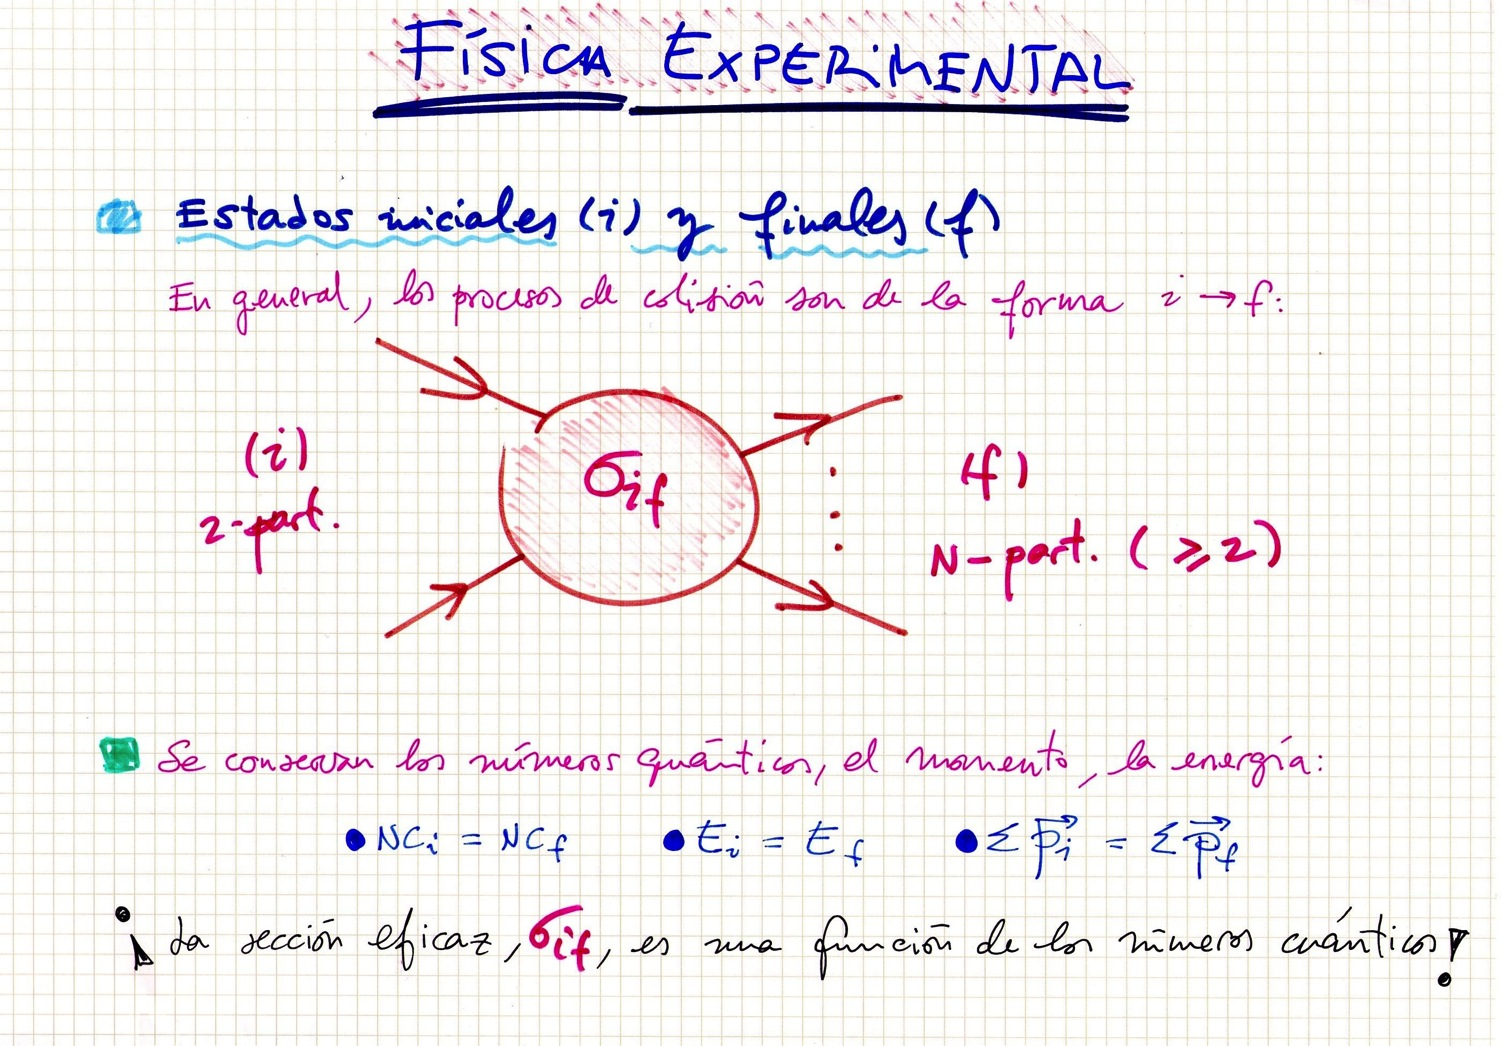 FÍSICA EXPERIMENTAL
Estados iniciales (i) y finales (f)
En general, los procesos de colisión son de la forma i → f:
(i)
2-part.
σif
(f)
N-part. (≥2)
Se conservan los números quánticos, el momento, la energía:
● NCi = NCf ● Ei = Ef ● Σ p⃗i = Σ p⃗f
¡La sección eficaz, σif, es una función de los números cuánticos!